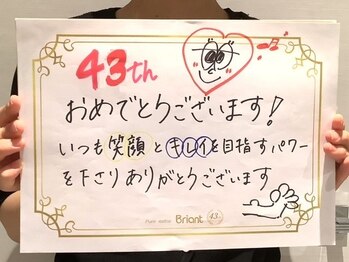 43th
おめでとうございます!
いつも笑顔とキレイを目指すパワー
を下さりありがとうございます
Briant 43